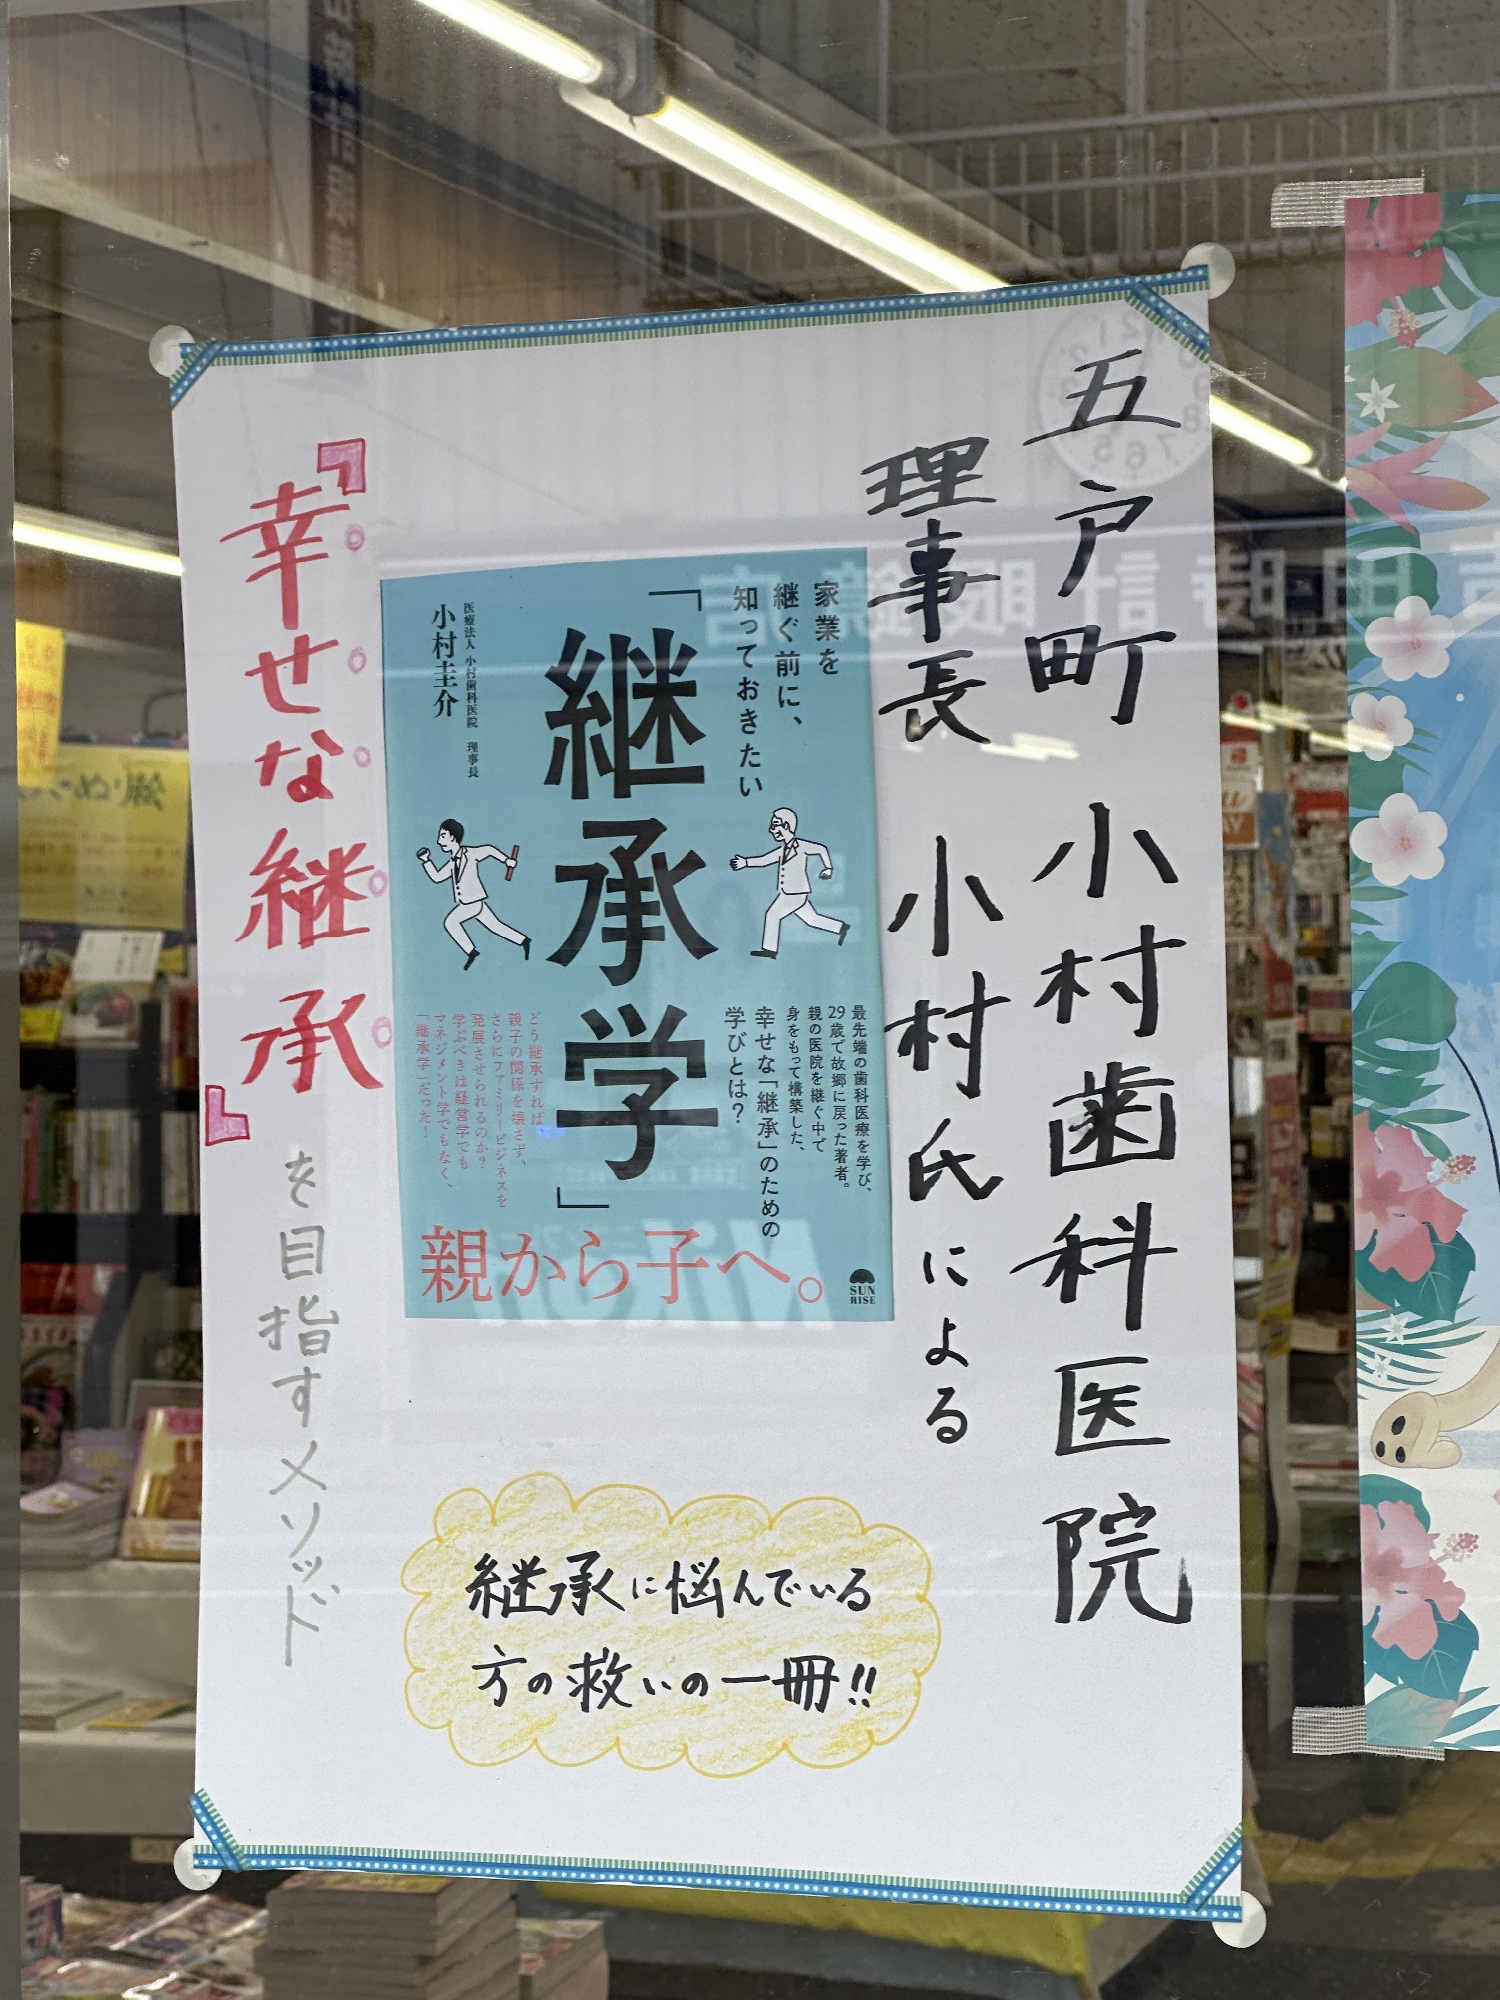 五戸町 小村歯科医院
理事長 小村氏による
家業を
継ぐ前に、
知っておきたい
「継承学」
医療法人 小村歯科医院 理事長
小村圭介
最先端の歯科医療を学び、
29歳で故郷に戻った著者。
親の医院を継ぐ中で
身をもって構築した、
幸せな「継承」のための
学びとは?
どう継承すれば
親子の関係を壊さず、
さらにファミリービジネスを
発展させられるのか?
学ぶべきは経営学でも
マネジメント学でもなく、
「継承学」だった!
親から子へ。
SUN
RISE
『幸せな継承』を目指すメソッド
継承に悩んでいる
方の救いの一冊!!